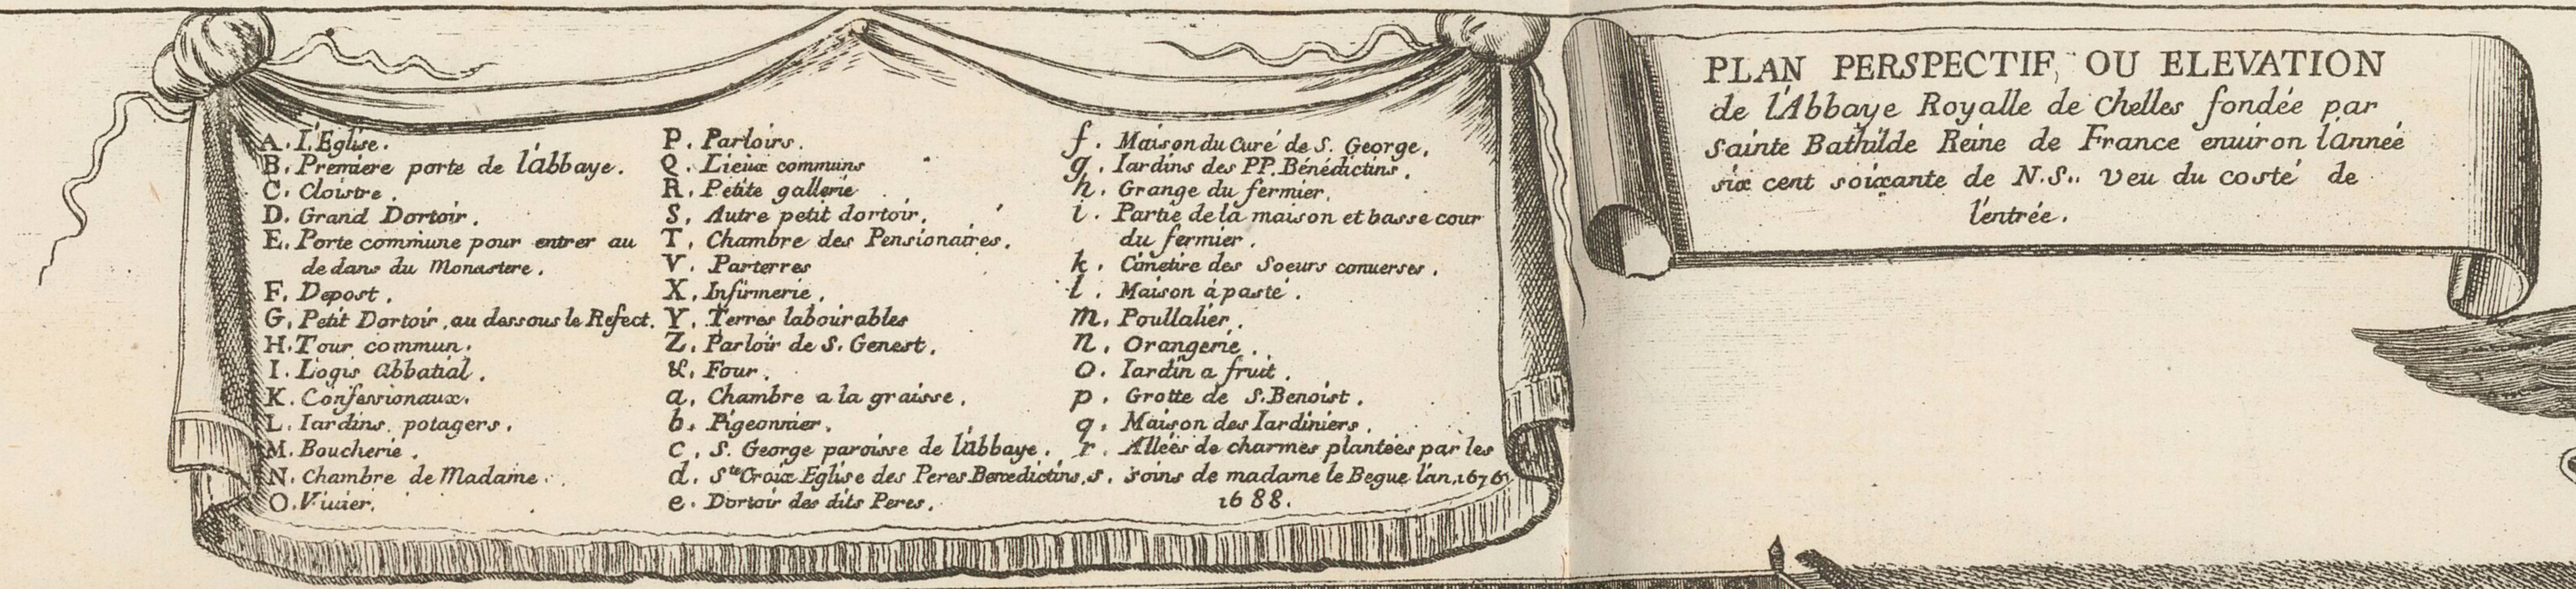 A. L'Eglise.
B. Premiere porte de l'abbaye.
C. Cloistre.
D. Grand Dortoir.
E. Porte commune pour entrer au
de dans du Monastere.
F. Depost.
G. Petit Dortoir, au dessous le Refect.
H. Tour commun.
I. Logis abbatial.
K. Confessionaux.
L. Iardins potagers.
M. Boucherie.
N. Chambre de Madame.
O. Viuier.
P. Parloirs.
Q. Lieux communs
R. Petite gallerie
S. Autre petit dortoir.
T. Chambre des Pensionaires.
V. Parterres
X. Infirmerie.
Y. Terres labourables
Z. Parloir de S. Genest.
&. Four.
a. Chambre a la graisse.
b. Pigeonnier.
c. S. George paroisse de l'abbaye.
d. Ste Croix Eglise des Peres Benedictins.
e. Dortoir des dits Peres.
f. Maison du Curé de S. George.
g. Iardins des PP. Bénédictins.
h. Grange du fermier.
i. Partie de la maison et basse cour
du fermier.
k. Cimetire des Soeurs conuerses.
l. Maison à paste.
m. Poullalier.
n. Orangerie.
o. Iardin a fruit.
p. Grotte de S. Benoist.
q. Maison des Iardiniers.
r. Allées de charmes plantées par les
s. soins de madame le Begue l'an 1676
1688.
PLAN PERSPECTIF, OU ELEVATION
de l'Abbaye Royalle de Chelles fondée par
Sainte Bathilde Reine de France enuiron l'année
six cent soixante de N.S.. Veu du costé de
l'entrée.